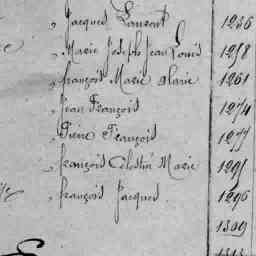 Jacques Laurent 1236
Marie Joseph Jean Louis 1258
François Marie Marie 1261
Jean François 1274
Pierre François 1277
François Célestin Marie 1291
François Jacques 1296
1309
1313